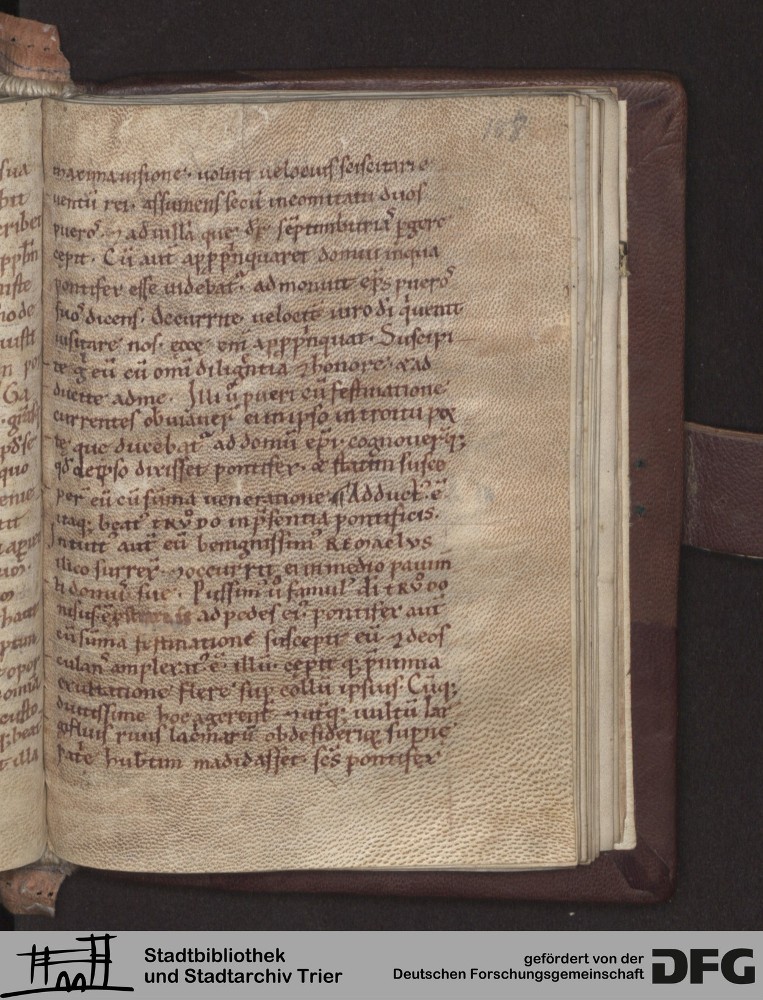 108
maxima uisione. uoluit uelocius sciscitari e
uentū rei. assumens secū incomitatu duos
pueros. ⁊ ad uillā que dr̄ septimburiā ꝑgere
cepit. Cū aut̄ appp̄inquaret domui inqua
pontifer esse uidebat᷑. admonuit ep̄s pueros
suos dicens. Decurrite uelociť uiro dī q̇uenit
uisitare nos. ecce eni appp̄inquat. Suscipi
te ǵ eū cū omī diligentia ⁊ honore. & ad
ducite adme. Illi ū pueri cū festinatione
currentes obuiauer̄ ei in ipso introitu por
te que ducebat᷑ ad domū ep̄i. cognouer̄q;
qd̄ de ipso dixisset pontifex. & statim susce
per̄ eū cū sūma ueneratione. Adduct᷒ ē
itaq; beat᷒ TRVDO in p̄sentia pontificis.
Intuit᷒ aut̄ eū benignissim᷒ REMACLVS
ilico surrex̄. ⁊ occurrit ei in medio pauim̄
ti domus sue. Piissim᷒ ū famul᷒ dī TRVDO
nisus ē ad pedes ei᷒. pontifex aut̄
cū sūma festinatione suscepit eū ⁊ deos
culans amplexat᷒ ē illū. cepit q; p̄ nimia
exultatione flere sup collū ipsius. Cūq;
diutissime hoc agerent. ⁊ utq; uultū lar
gifluis riuis lacrimarū ob desideriū supne
patrie hubtim madidasset. scs̄ pontifex
Stadtbibliothek
und Stadtarchiv Trier
gefördert von der
Deutschen Forschungsgemeinschaft
DFG